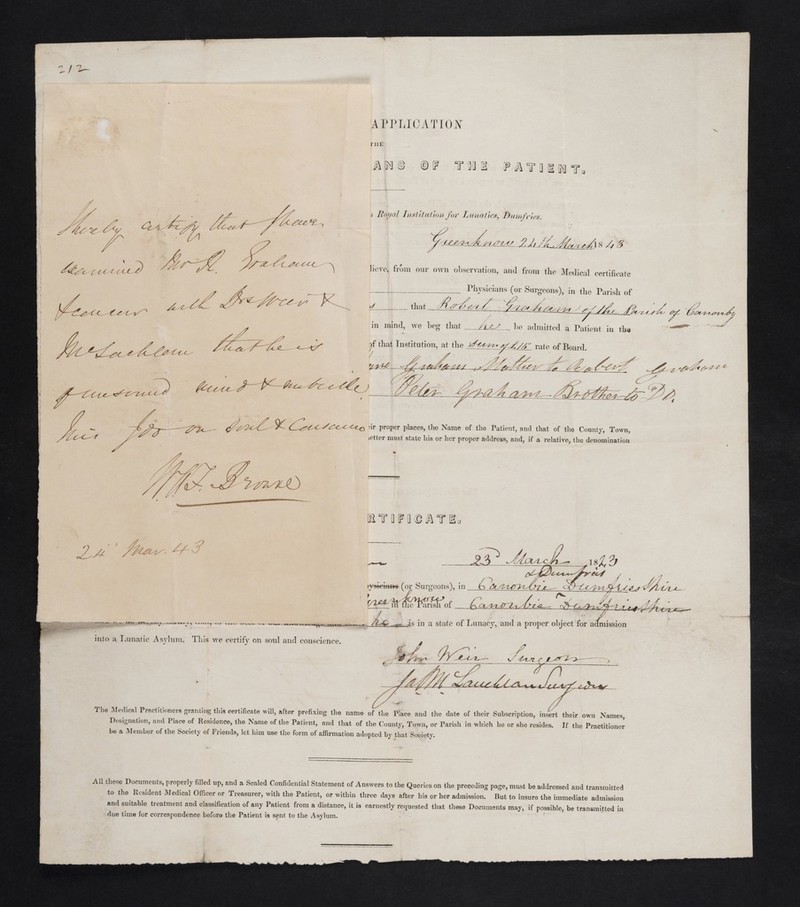 212
I hereby certify that I have
examined Mr R. Graham
& concur with Drs Weir &
McLachlan that he is
of unsound mind & imbecile
this I do on Soul & Conscience
W.A.F. Browne
24 Mar. 43
APPLICATION
THE
ANS OF THE PATIENT.
Royal Institution for Lunatics, Dumfries.
Greenknowe 24th March 1843
lieve, from our own observation, and from the Medical certificate
Physicians (or Surgeons), in the Parish of
that Robert Graham of the Parish of Canonby
in mind, we beg that he be admitted a Patient in the
of that Institution, at the Sum of £15 rate of Board.
Graham Mother to Robert Graham
Peter Graham Brother to Do.
eir proper places, the Name of the Patient, and that of the County, Town,
etter must state his or her proper address, and, if a relative, the denomination
RTIFICATE.
23d March 1843
& Dumfries
ysicians (or Surgeons), in Canonbie Dumfries Shire
Greenknow in the Parish of Canonbie Dumfries Shire
he is in a state of Lunacy, and a proper object for admission
into a Lunatic Asylum. This we certify on soul and conscience.
John Weir Surgeon
Ja. McLauchlan Surgeon
The Medical Practitioners granting this certificate will, after prefixing the name of the Place and the date of their Subscription, insert their own Names,
Designation, and Place of Residence, the Name of the Patient, and that of the County, Town, or Parish in which he or she resides. If the Practitioner
be a Member of the Society of Friends, let him use the form of affirmation adopted by that Society.
All these Documents, properly filled up, and a Sealed Confidential Statement of Answers to the Queries on the preceding page, must be addressed and transmitted
to the Resident Medical Officer or Treasurer, with the Patient, or within three days after his or her admission. But to insure the immediate admission
and suitable treatment and classification of any Patient from a distance, it is earnestly requested that these Documents may, if possible, be transmitted in
due time for correspondence before the Patient is sent to the Asylum.